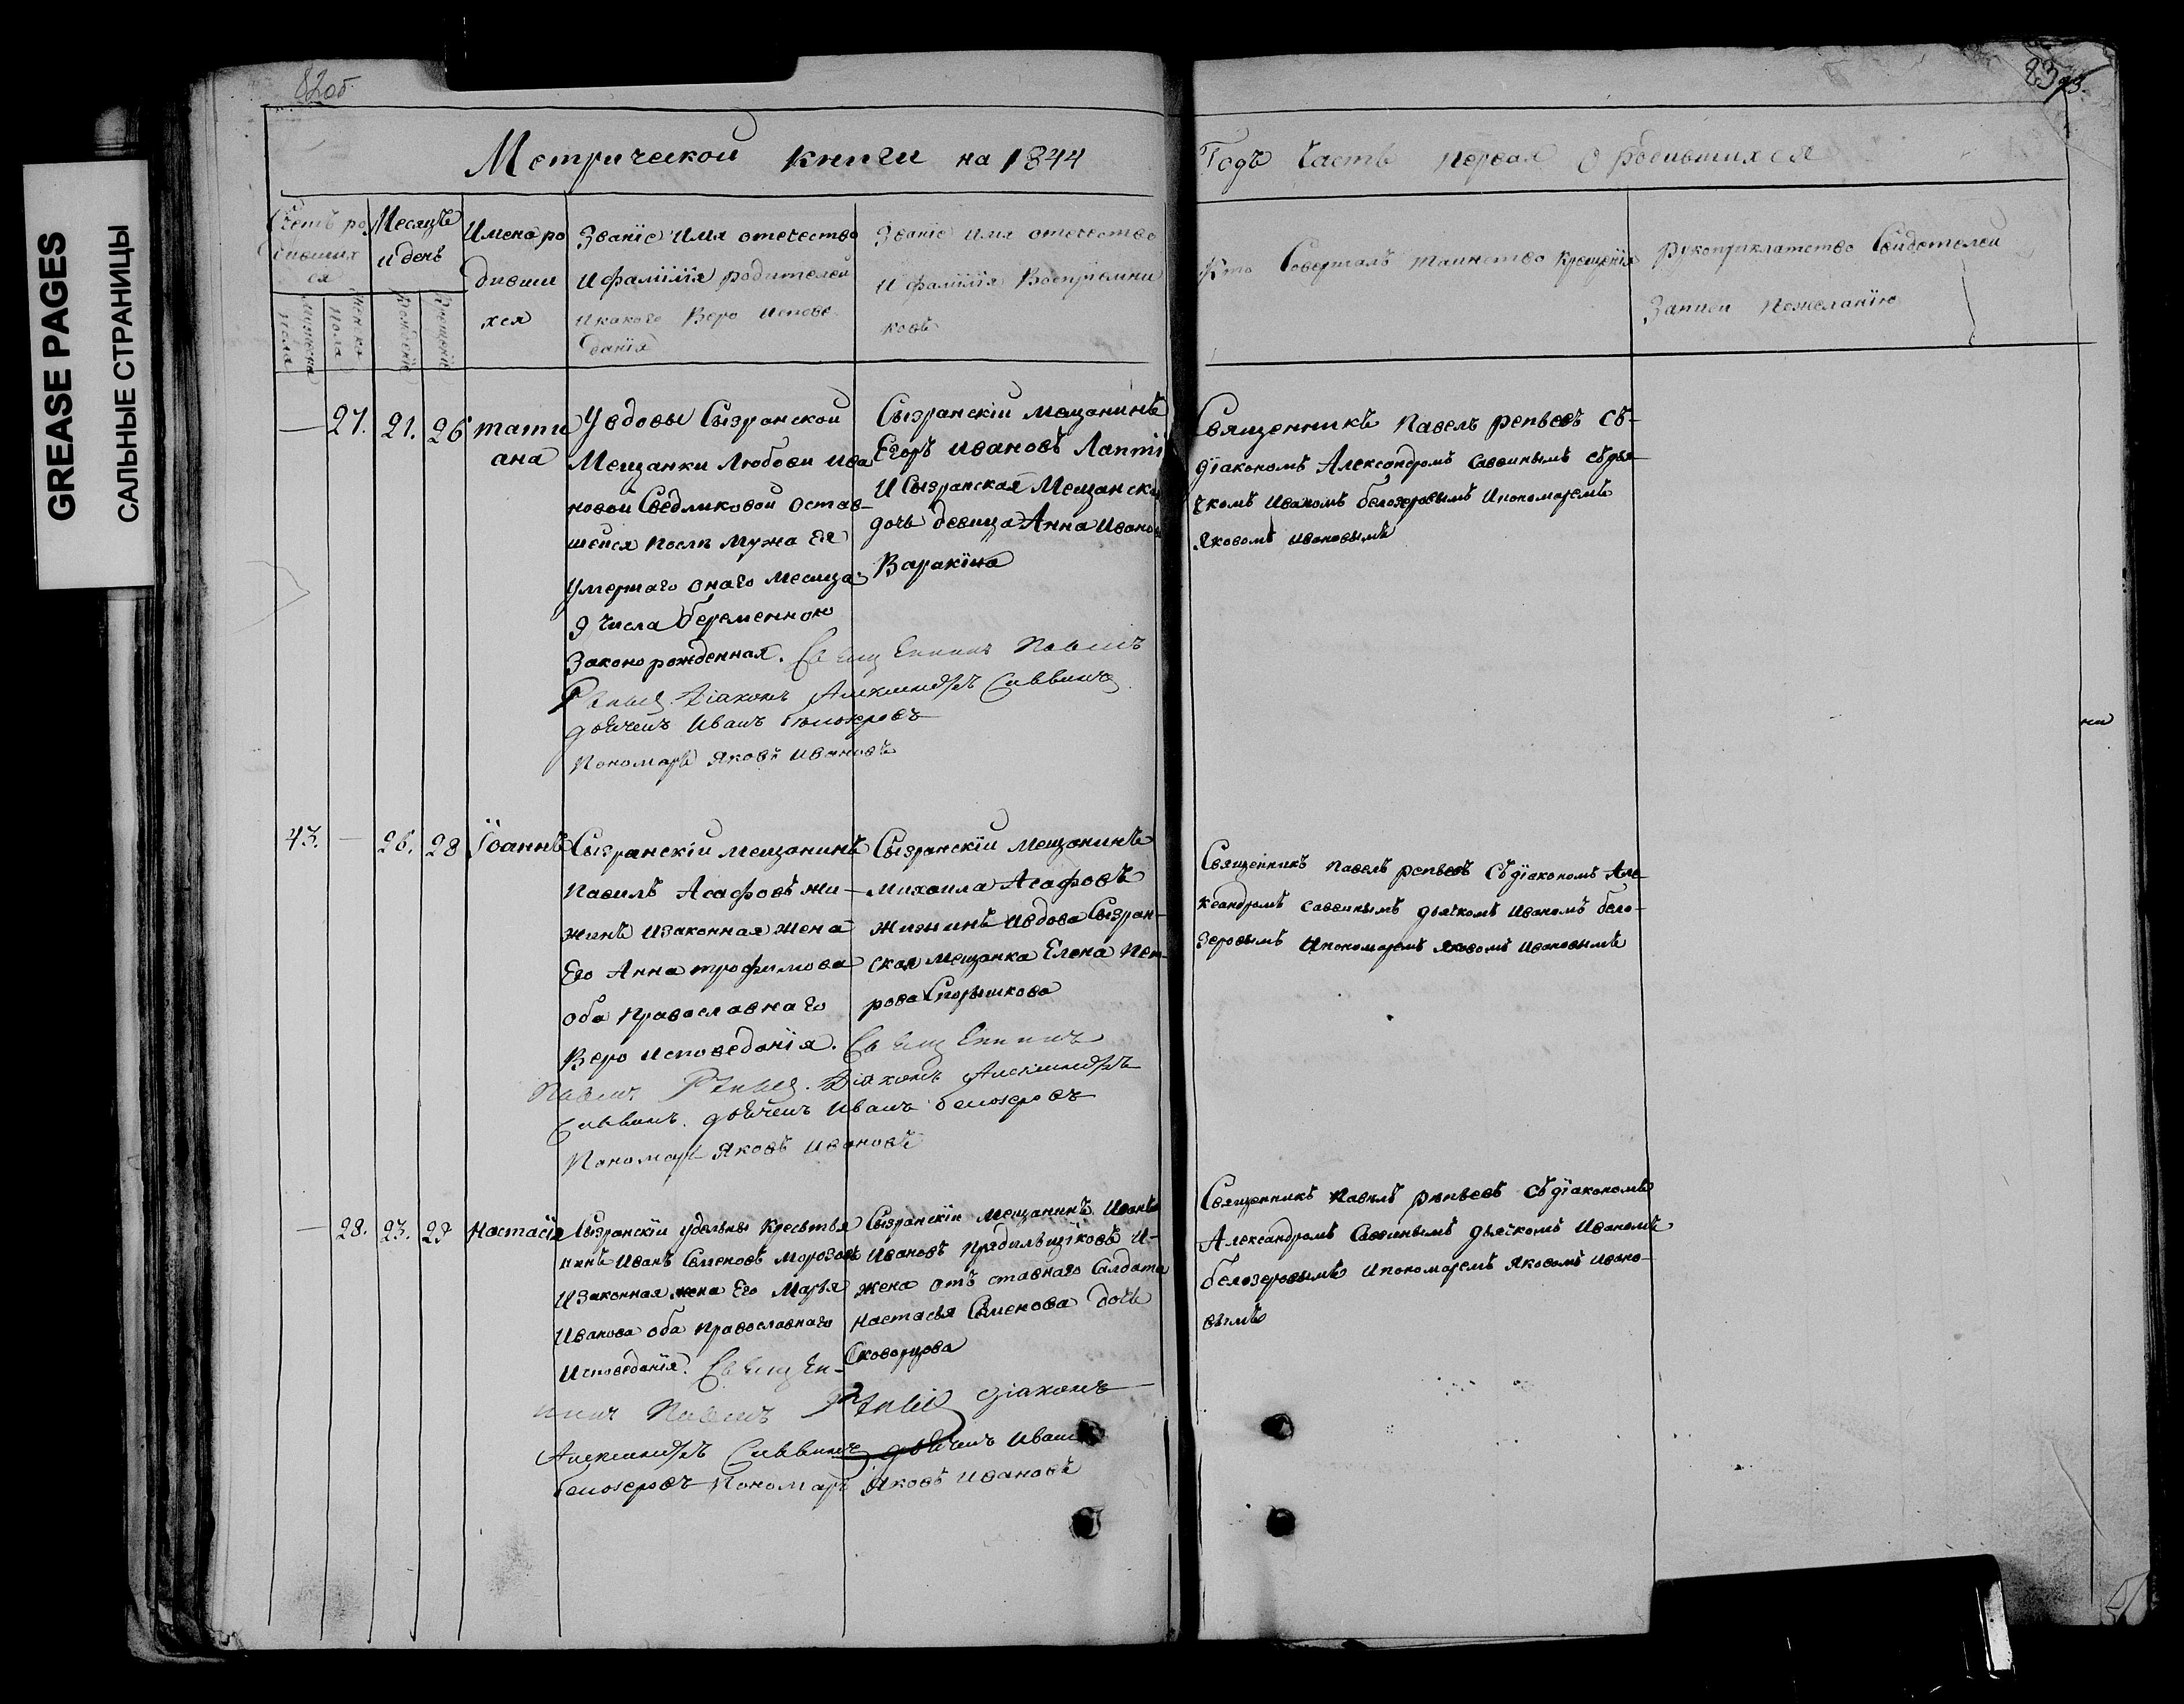 GREASE PAGES
САЛЬНЫЕ СТРАНИЦЫ
82об
83
Метрической книги на 1844
Годъ Часть первая О родившихся
Счетъ ро
дивших
ся
Мужеска
пола
Женска
пола
Месяцъ
и день
Рожденiе
Крещенiе
Имена ро
дивши
хся
Званiе имя отечество
и фамiлiя родителей
и какого Веро испове
данiя
Званiе имя отечество
и фамiлiя Воспрiемни
ковъ
Кто Совершалъ таинство Крещенiя
Рукоприклатство Свидетелей
Записи Пожеланiю
— 27. 21. 26
тати
ана
У вдовы Сызранской
Мещанки Любови Ива
новой Сведликовой остав-
шейся после Мужа Ея
Умершаго онаго месяца
9 числа беременною
Законорожденная. Священникъ Павелъ
Репьев. Дiаконъ Александръ Саввинъ
дьячекъ Иванъ белозеровъ
Пономарь Яковъ Ивановъ
Сызранскiй мещанинъ
Егоръ Ивановъ Лапті
И Сызранская Мещанска
дочь девица Анна Ивано
Варакiна
Священникъ Павелъ репьевъ Съ-
дiакономъ Александромъ Саввинымъ съ дья
чкомъ Иваномъ белозеровымъ И пономаремъ
Яковомъ Ивановымъ
43. — 26. 28
Iоаннъ
Сызранскiй мещанинъ
Павилъ Асафовъ жи-
жинъ И законная жена
Его Анна трофимова
оба Православнаго
Веро исповеданiя. Священникъ
Павелъ Репьев. Дiаконъ Александръ
Саввинъ. дьячекъ Иванъ белозеровъ
Пономарь Яковъ Ивановъ
Сызранскiй мещанинъ
михаила Асафовъ
жижинъ И вдова Сызран-
ская мещанка Елена Пет-
рова
Священникъ Павелъ репьевъ Съ дiакономъ Але-
ксандромъ Саввинымъ дьячкомъ Иваномъ бело-
зеровымъ И пономаремъ Яковомъ Ивановымъ
— 28. 23. 29
Настасiя
Сызранскiй удельны Кресьтья
нинъ Иванъ Семеновъ Морозовъ
И Законная жена Его Марья
Иванова оба Православнаго
Исповеданiя. Священ-
никъ Павелъ Репьев дiаконъ
Александръ Саввинъ дьячекъ Иванъ
белозеровъ Пономарь Яковъ Ивановъ
Сызранскiй мещанинъ Иванъ
Ивановъ Прядильщiковъ И-
жена отъ ставнаго Салдата
Настасья Семенова дочь
Скворцова
Священникъ Павилъ репьевъ Съ дiакономъ
Александромъ Саввинымъ дьячкомъ Иваномъ
белозеровымъ И пономаремъ Яковомъ Ивано-
вымъ